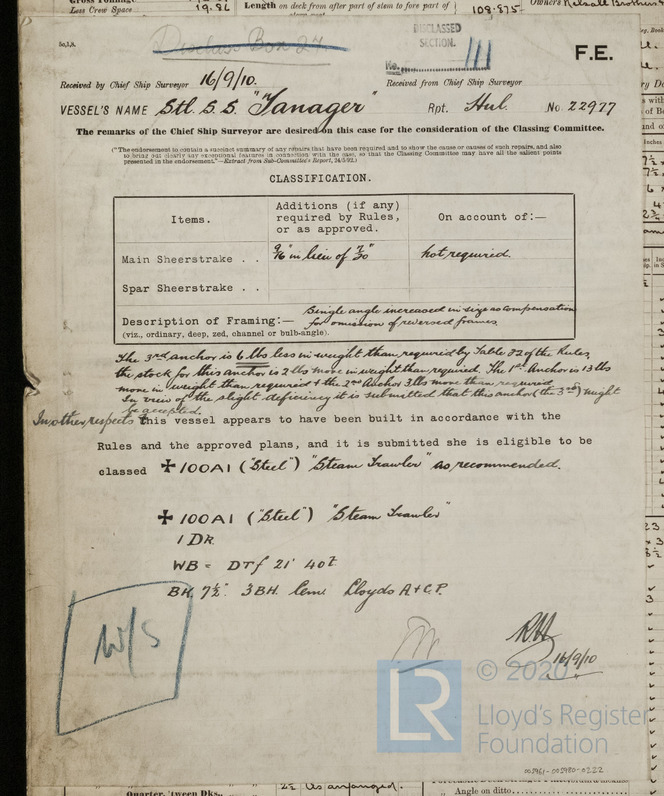 Less Crew Space
19.86
Length on deck from after part of stem to fore part of
108.875
Owners Kelsall Brothers
DISCLASSED
SECTION.
No. 111
Disclass Box 27
5o,1,8.
F.E.
Received by Chief Ship Surveyor 16/9/10.
Received from Chief Ship Surveyor
VESSEL'S NAME Stl. S.S. "Tanager" Rpt. Hul. No. 22977
The remarks of the Chief Ship Surveyor are desired on this case for the consideration of the Classing Committee.
("The endorsement to contain a succinct summary of any repairs that have been required and to show the cause or causes of such repairs, and also
to bring out clearly any exceptional features in connection with the case, so that the Classing Committee may have all the salient points
presented in the endorsement."—Extract from Sub-Committee's Report, 24/5/92.)
CLASSIFICATION.
Items.
Additions (if any)
required by Rules,
or as approved.
On account of:—
Main Sheerstrake . .
9/16" in lieu of 7/20"
not required.
Spar Sheerstrake . .
Description of Framing:— Single angle increased in size as compensation
for omission of reversed frames
(viz., ordinary, deep, zed, channel or bulb-angle).
The 3rd anchor is 6 lbs less in weight than required by Table 32 of the Rules,
the stock for this anchor is 2 lbs more in weight than required. The 1st Anchor is 13 lbs
more in weight than required & the 2nd Anchor 3 lbs more than required.
In view of the slight deficiency it is submitted that this anchor (the 3rd) might
be accepted.
In other respects this vessel appears to have been built in accordance with the
Rules and the approved plans, and it is submitted she is eligible to be
classed ✠ 100A1 ("Steel") "Steam Trawler" as recommended.
✠ 100A1 ("Steel") "Steam Trawler"
1 DK
WB = DTf 21' 40t
BH. 7½". 3BH. Cem. Lloyds A & C.P.
W/S
RH
16/9/10
LR
© 2020
Lloyd's Register
Foundation
002961-002980-0222
Quarter, 'tween Dks.
2½ As arranged.
Angle on ditto